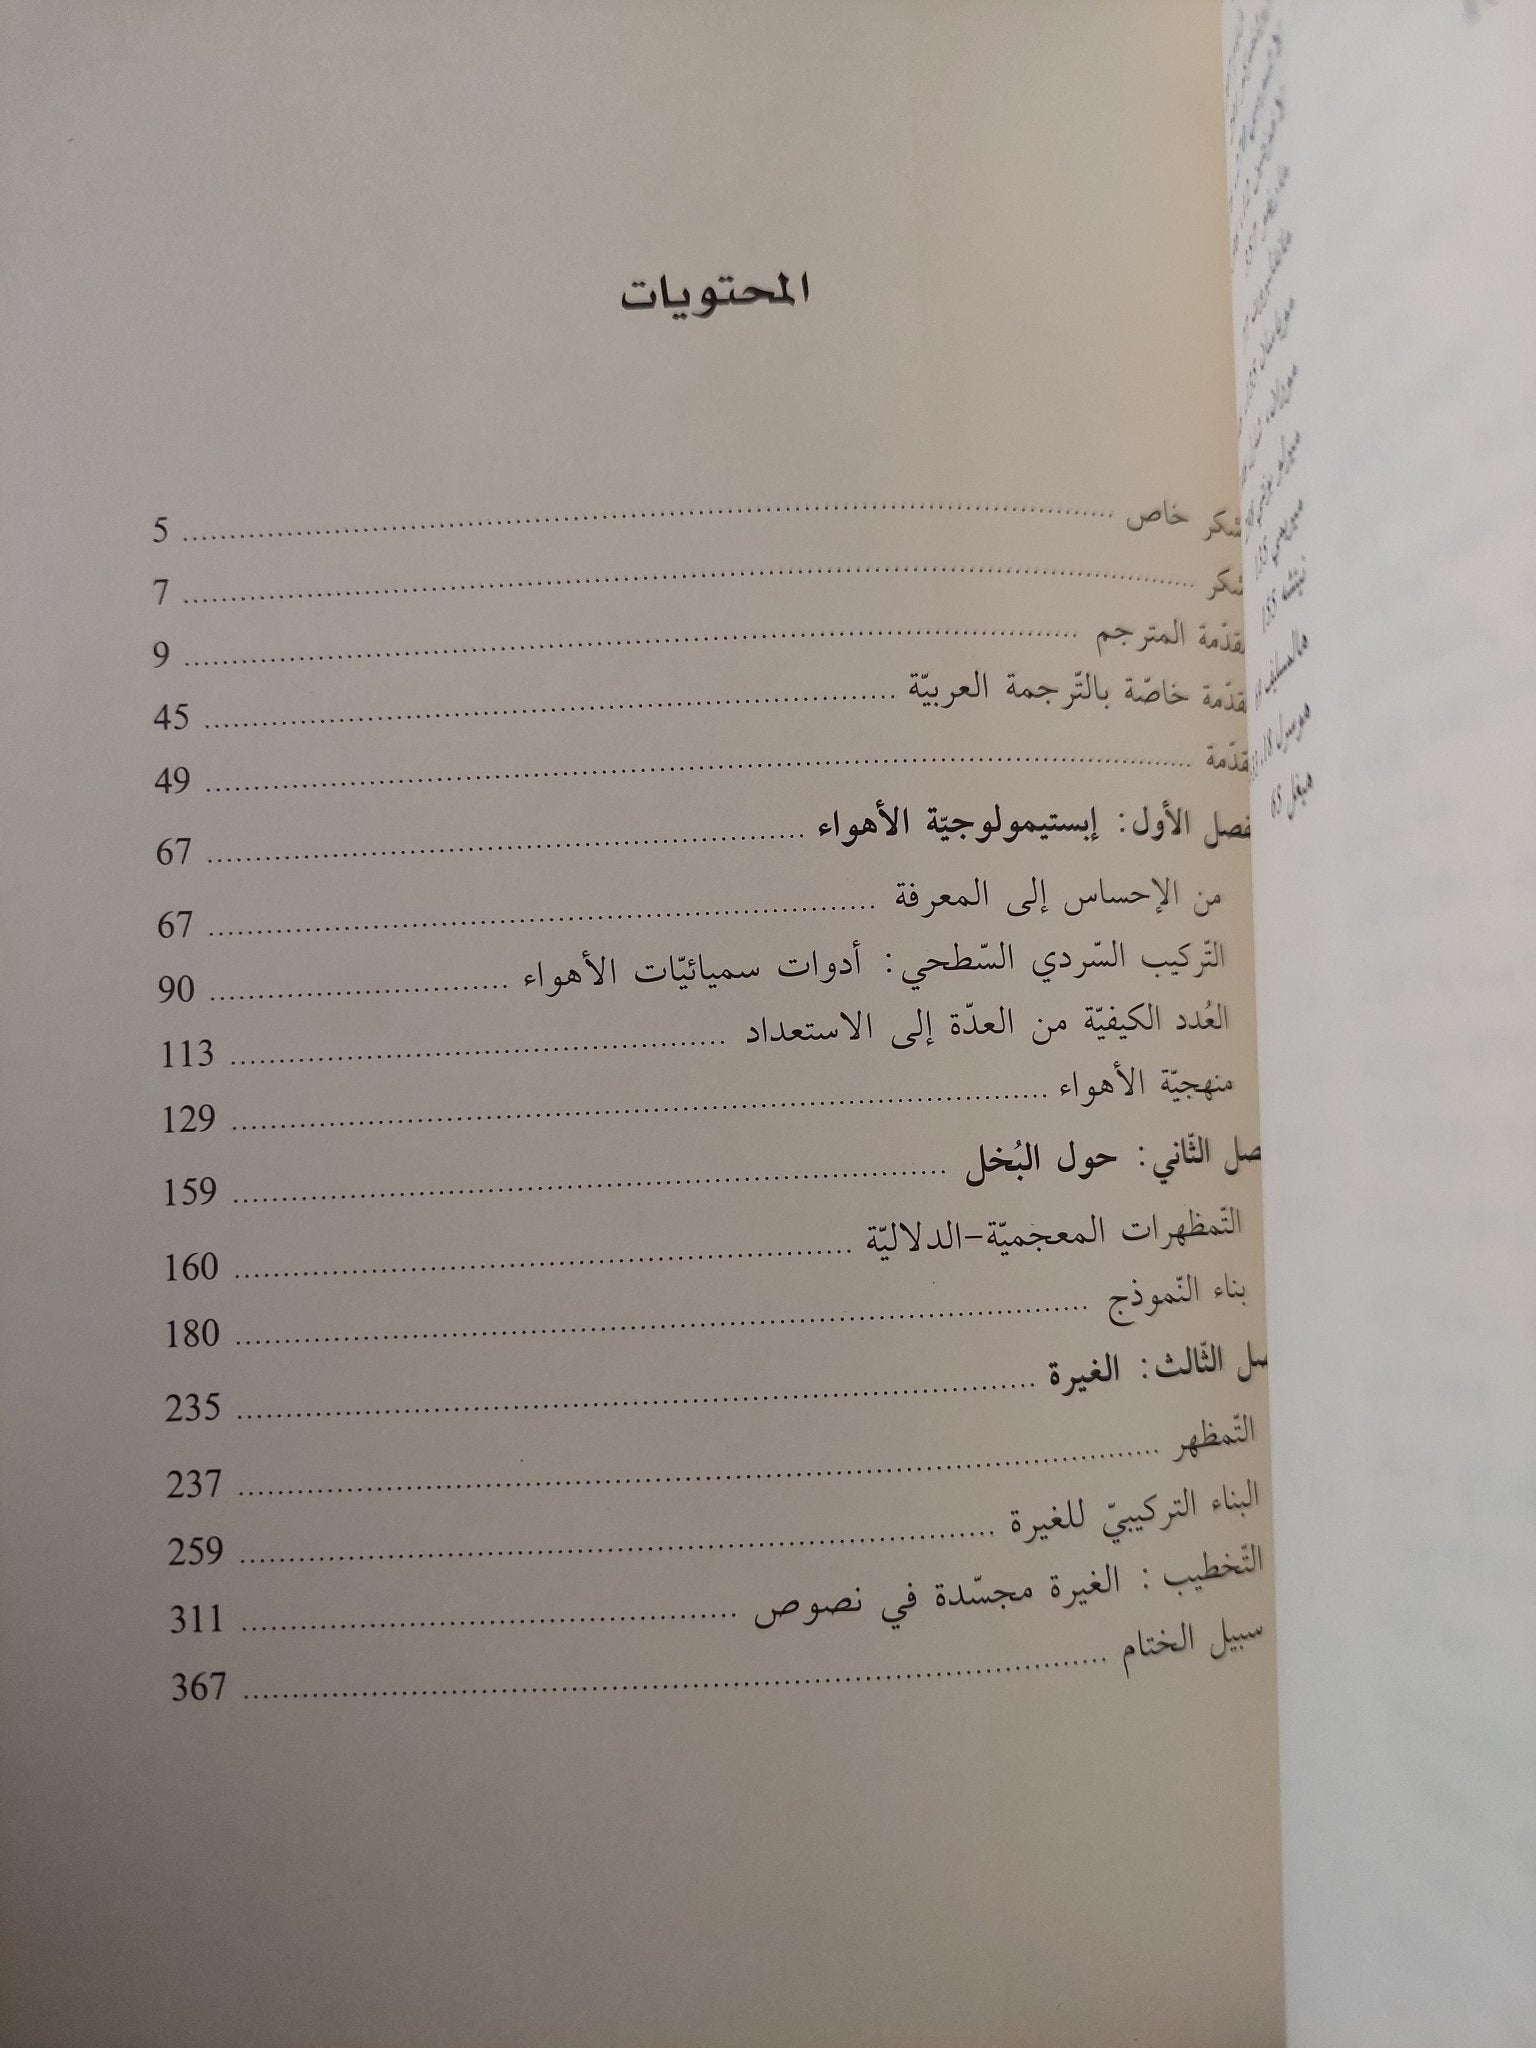 المحتويات
شكر خاص 5
شكر 7
مقدّمة المترجم 9
مقدّمة خاصّة بالتّرجمة العربيّة 45
مقدّمة 49
الفصل الأول: إبستيمولوجيّة الأهواء 67
من الإحساس إلى المعرفة 67
التّركيب السّردي السّطحي: أدوات سميائيّات الأهواء 90
العُدد الكيفيّة من العدّة إلى الاستعداد 113
منهجيّة الأهواء 129
الفصل الثّاني: حول البُخل 159
التّمظهرات المعجميّة-الدلاليّة 160
بناء النّموذج 180
الفصل الثّالث: الغيرة 235
التّمظهر 237
البناء التركيبيّ للغيرة 259
التّخطيب: الغيرة مجسّدة في نصوص 311
سبيل الختام 367
نيتشه 155
هيغل 65